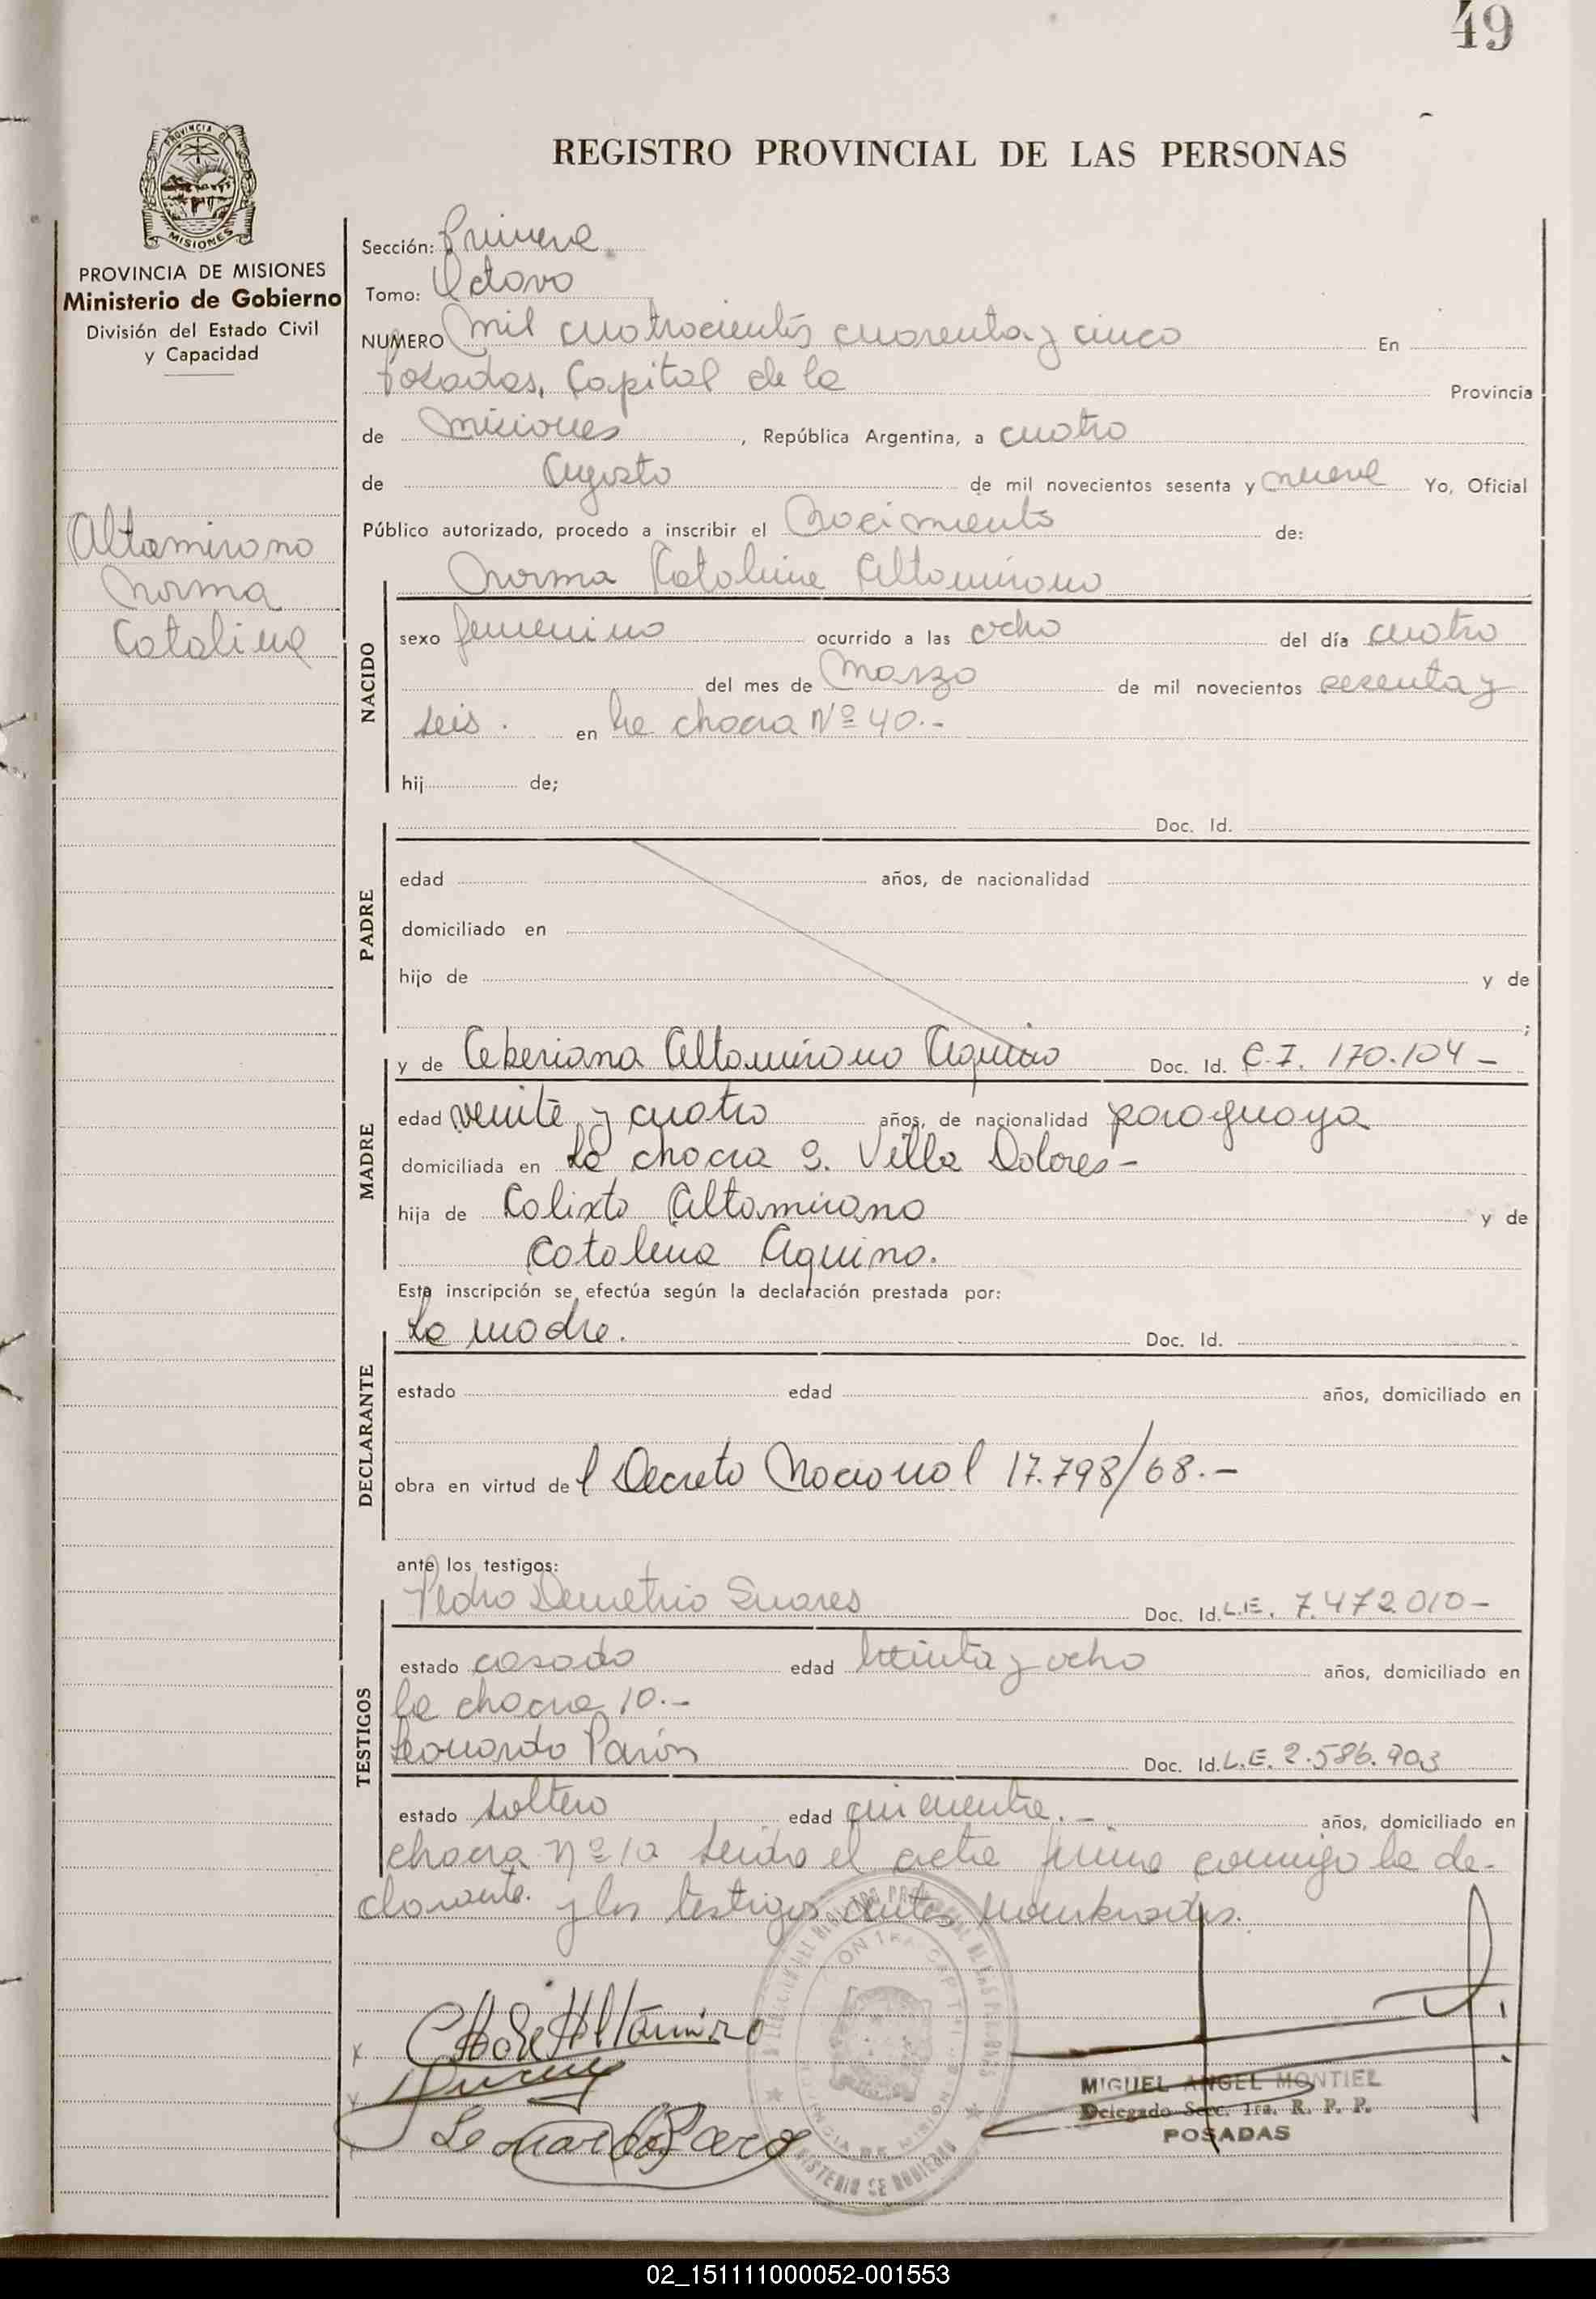 49
REGISTRO PROVINCIAL DE LAS PERSONAS
PROVINCIA DE MISIONES
Ministerio de Gobierno
División del Estado Civil
y Capacidad
Altamirano
Norma
Catalina
Sección: Primera
Tomo: Octavo
NUMERO Mil cuatrocientos cuarenta y cinco En
Posadas, Capital de la Provincia
de Misiones, República Argentina, a cuatro
de Agosto de mil novecientos sesenta y nueve Yo, Oficial
Público autorizado, procedo a inscribir el Nacimiento de:
Norma Catalina Altamirano
NACIDO
sexo femenino ocurrido a las ocho del día cuatro
del mes de Marzo de mil novecientos sesenta y
seis. en la chacra Nº 40.-
hij de;
PADRE
Doc. Id.
edad años, de nacionalidad
domiciliado en
hijo de y de
;
MADRE
y de Ceberiana Altamirano Aquino Doc. Id. C.I. 170.104 -
edad veinte y cuatro años, de nacionalidad paraguaya
domiciliada en La chacra S. Villa Dolores -
hija de Calixto Altamirano y de
Catalina Aquino.
Esta inscripción se efectúa según la declaración prestada por:
DECLARANTE
La madre. Doc. Id.
estado edad años, domiciliado en
obra en virtud del Decreto Nacional 17.798/68.-
ante los testigos:
TESTIGOS
Pedro Demetrio Suares Doc. Id. L.E. 7.472.010-
estado casado edad treinta y ocho años, domiciliado en
la chacra 10.-
Leonardo Doc. Id. L.E. 2.586.903
estado soltero edad cincuenta.- años, domiciliado en
chacra Nº 10 leida el acta firma conmigo la de-
clarante. y los testigos antes nombrados.
MIGUEL ANGEL MONTIEL
Delegado Secc. 1ra. R. P. P.
POSADAS
02_151111000052-001553